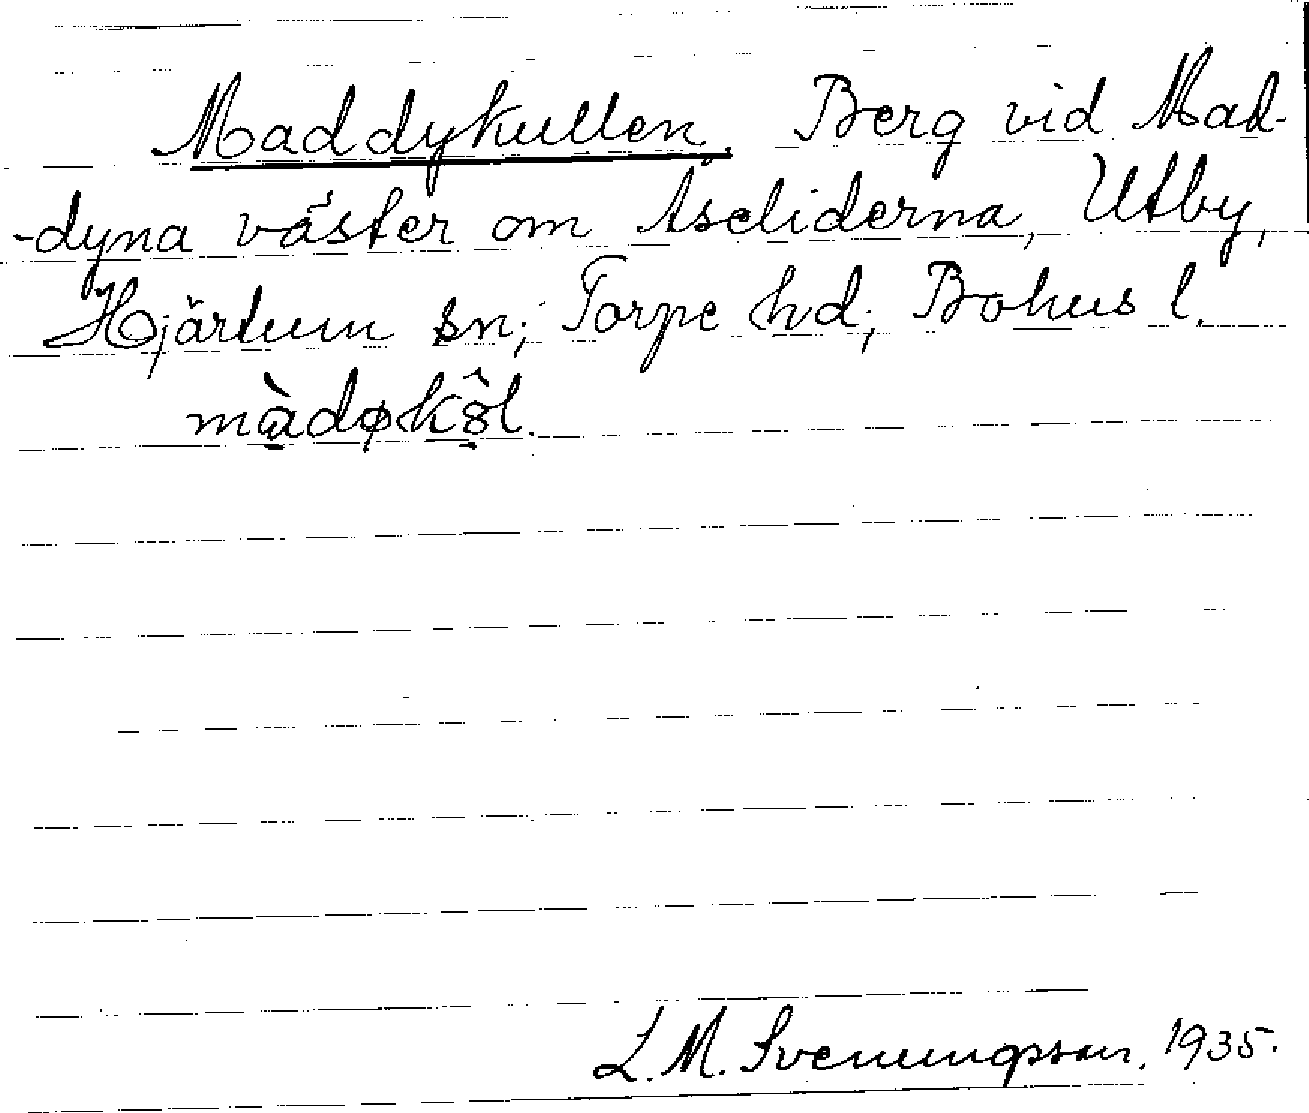 Maddykullen. Berg vid Mad-
-dyna väster om Aseliderna, Utby,
Hjärtum sn; Torpe hd; Bohus l.
màdøkôl.
L. M. Svenungsson, 1935.